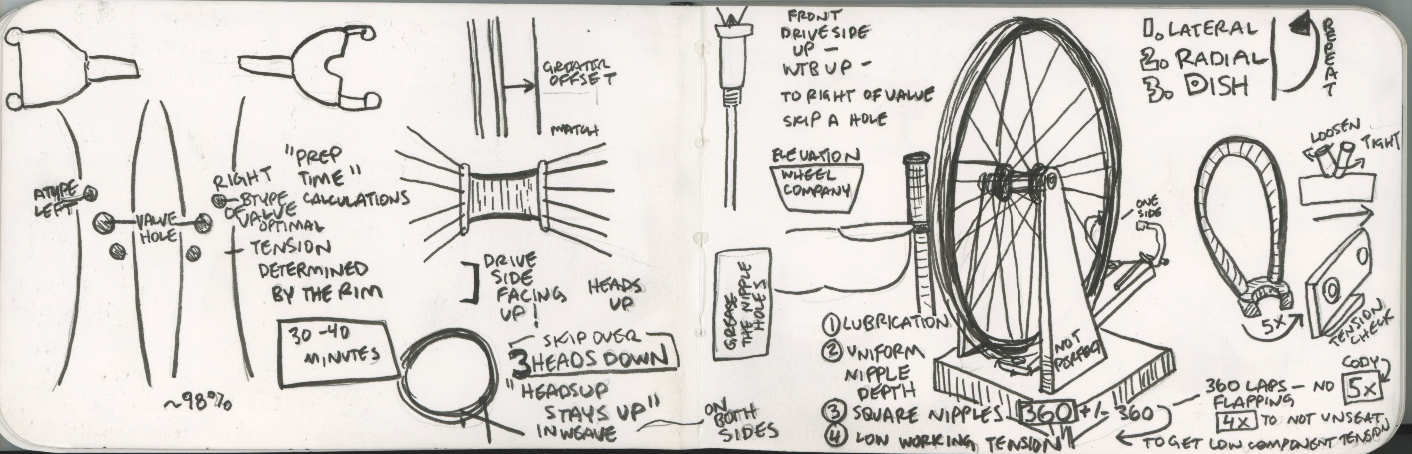 GREATER
OFFSET
MATCH
"PREP
TIME"
CALCULATIONS
ATYPE
LEFT
VALVE
HOLE
RIGHT
BTYPE
OF VALVE
OPTIMAL
TENSION
DETERMINED
BY THE RIM
~98%
30-40
MINUTES
DRIVE
SIDE
FACING
UP!
HEADS
UP
SKIP OVER
3 HEADS DOWN
"HEADSUP
STAYS UP"
IN WEAVE
ON
BOTH
SIDES
FRONT
DRIVESIDE
UP -
WTB UP -
TO RIGHT OF VALVE
SKIP A HOLE
ELEVATION
WHEEL
COMPANY
GREASE
THE NIPPLE
HOLES
1 LUBRICATION
2 UNIFORM
NIPPLE
DEPTH
3 SQUARE NIPPLES
4 LOW WORKING TENSION
360 +/- 360
NOT
PERFECT
ONE
SIDE
1. LATERAL
2. RADIAL
3. DISH
REPEAT
LOOSEN
TIGHT
5X
TENSION
CHECK
CODY
5X
360 LAPS - NO
FLAPPING
4X TO NOT UNSEAT
TO GET LOW COMPONENT TENSION